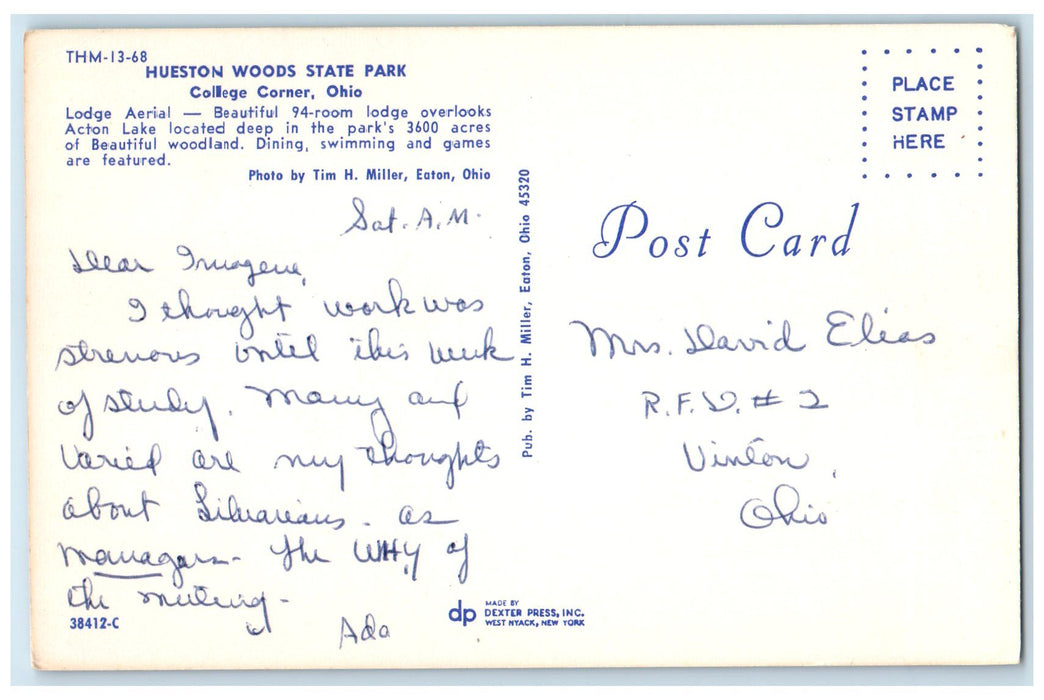 THM-13-68
HUESTON WOODS STATE PARK
College Corner, Ohio
Lodge Aerial — Beautiful 94-room lodge overlooks
Acton Lake located deep in the park's 3600 acres
of Beautiful woodland. Dining, swimming and games
are featured.
Photo by Tim H. Miller, Eaton, Ohio
Sat. A.M.
Dear Imogene,
I thought work was
strenous until this week
of study. Many and
varied are my thoughts
about Librarians - as
managers - the WHY of
the meeting -
Ada
38412-C
Pub. by Tim H. Miller, Eaton, Ohio 45320
dp MADE BY
DEXTER PRESS, INC.
WEST NYACK, NEW YORK
PLACE
STAMP
HERE
Post Card
Mrs. David Elias
R.F.D. # 2
Vinton,
Ohio